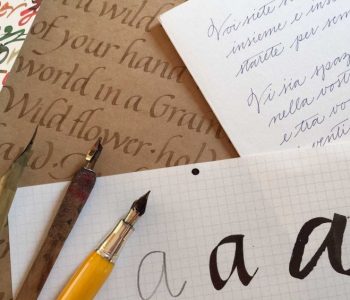 a wild
of your hand
world in a Grain
Wildflower · hol
and
Voi siete
insieme e insie
starete per sem
Vi sia spaz
nella vost
e tra vo
venti
a a a